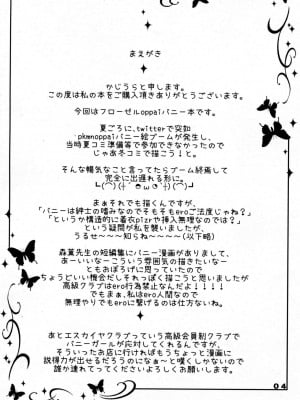 まえがき
かじうらと申します。
この度は私の本をご購入頂きありがとうございます。
今回はフローゼルoppaiバニー本です。
夏ごろに、twitterで突如
pkmnoppaiバニー絵ブームが発生し、
当時夏コミ等で参加できなかったので
じゃあ冬コミで描こう!と。
そんな暢気なこと言ってたらブーム終焉して
完全に出遅れる形に。
まぁそれでも描くんですが、
「バニーは紳士の嗜みなのでそもそもeroご法度じゃね?」
「というか構造的に着衣のズラし挿入無理なのでは?」
という疑問が私を襲いましたが、
うるせ~~~知らね~~~~(以下略)
森薫先生の短編集にバニー漫画がありまして、
あーいいなーこういう雰囲気の描きたいなー
ともおぼろげに思っていたので
ちょうどいい機会だしそれっぽく描こうと思いましたが
高級クラブはero行為禁止なんだよ!!!!
でもまぁ、私はero人間なので
無理やりでもeroに繋げるのは仕方ないね。
あとエスカイヤクラブっていう高級会員制クラブで
バニーガールが応対してくれるんですが、
そういったお店に行ければもうちょっと漫画に
説得力が出せるだろうのになぁ~と嘆くしかないので
誰か連れてってくださいよろしくお願いします。
04